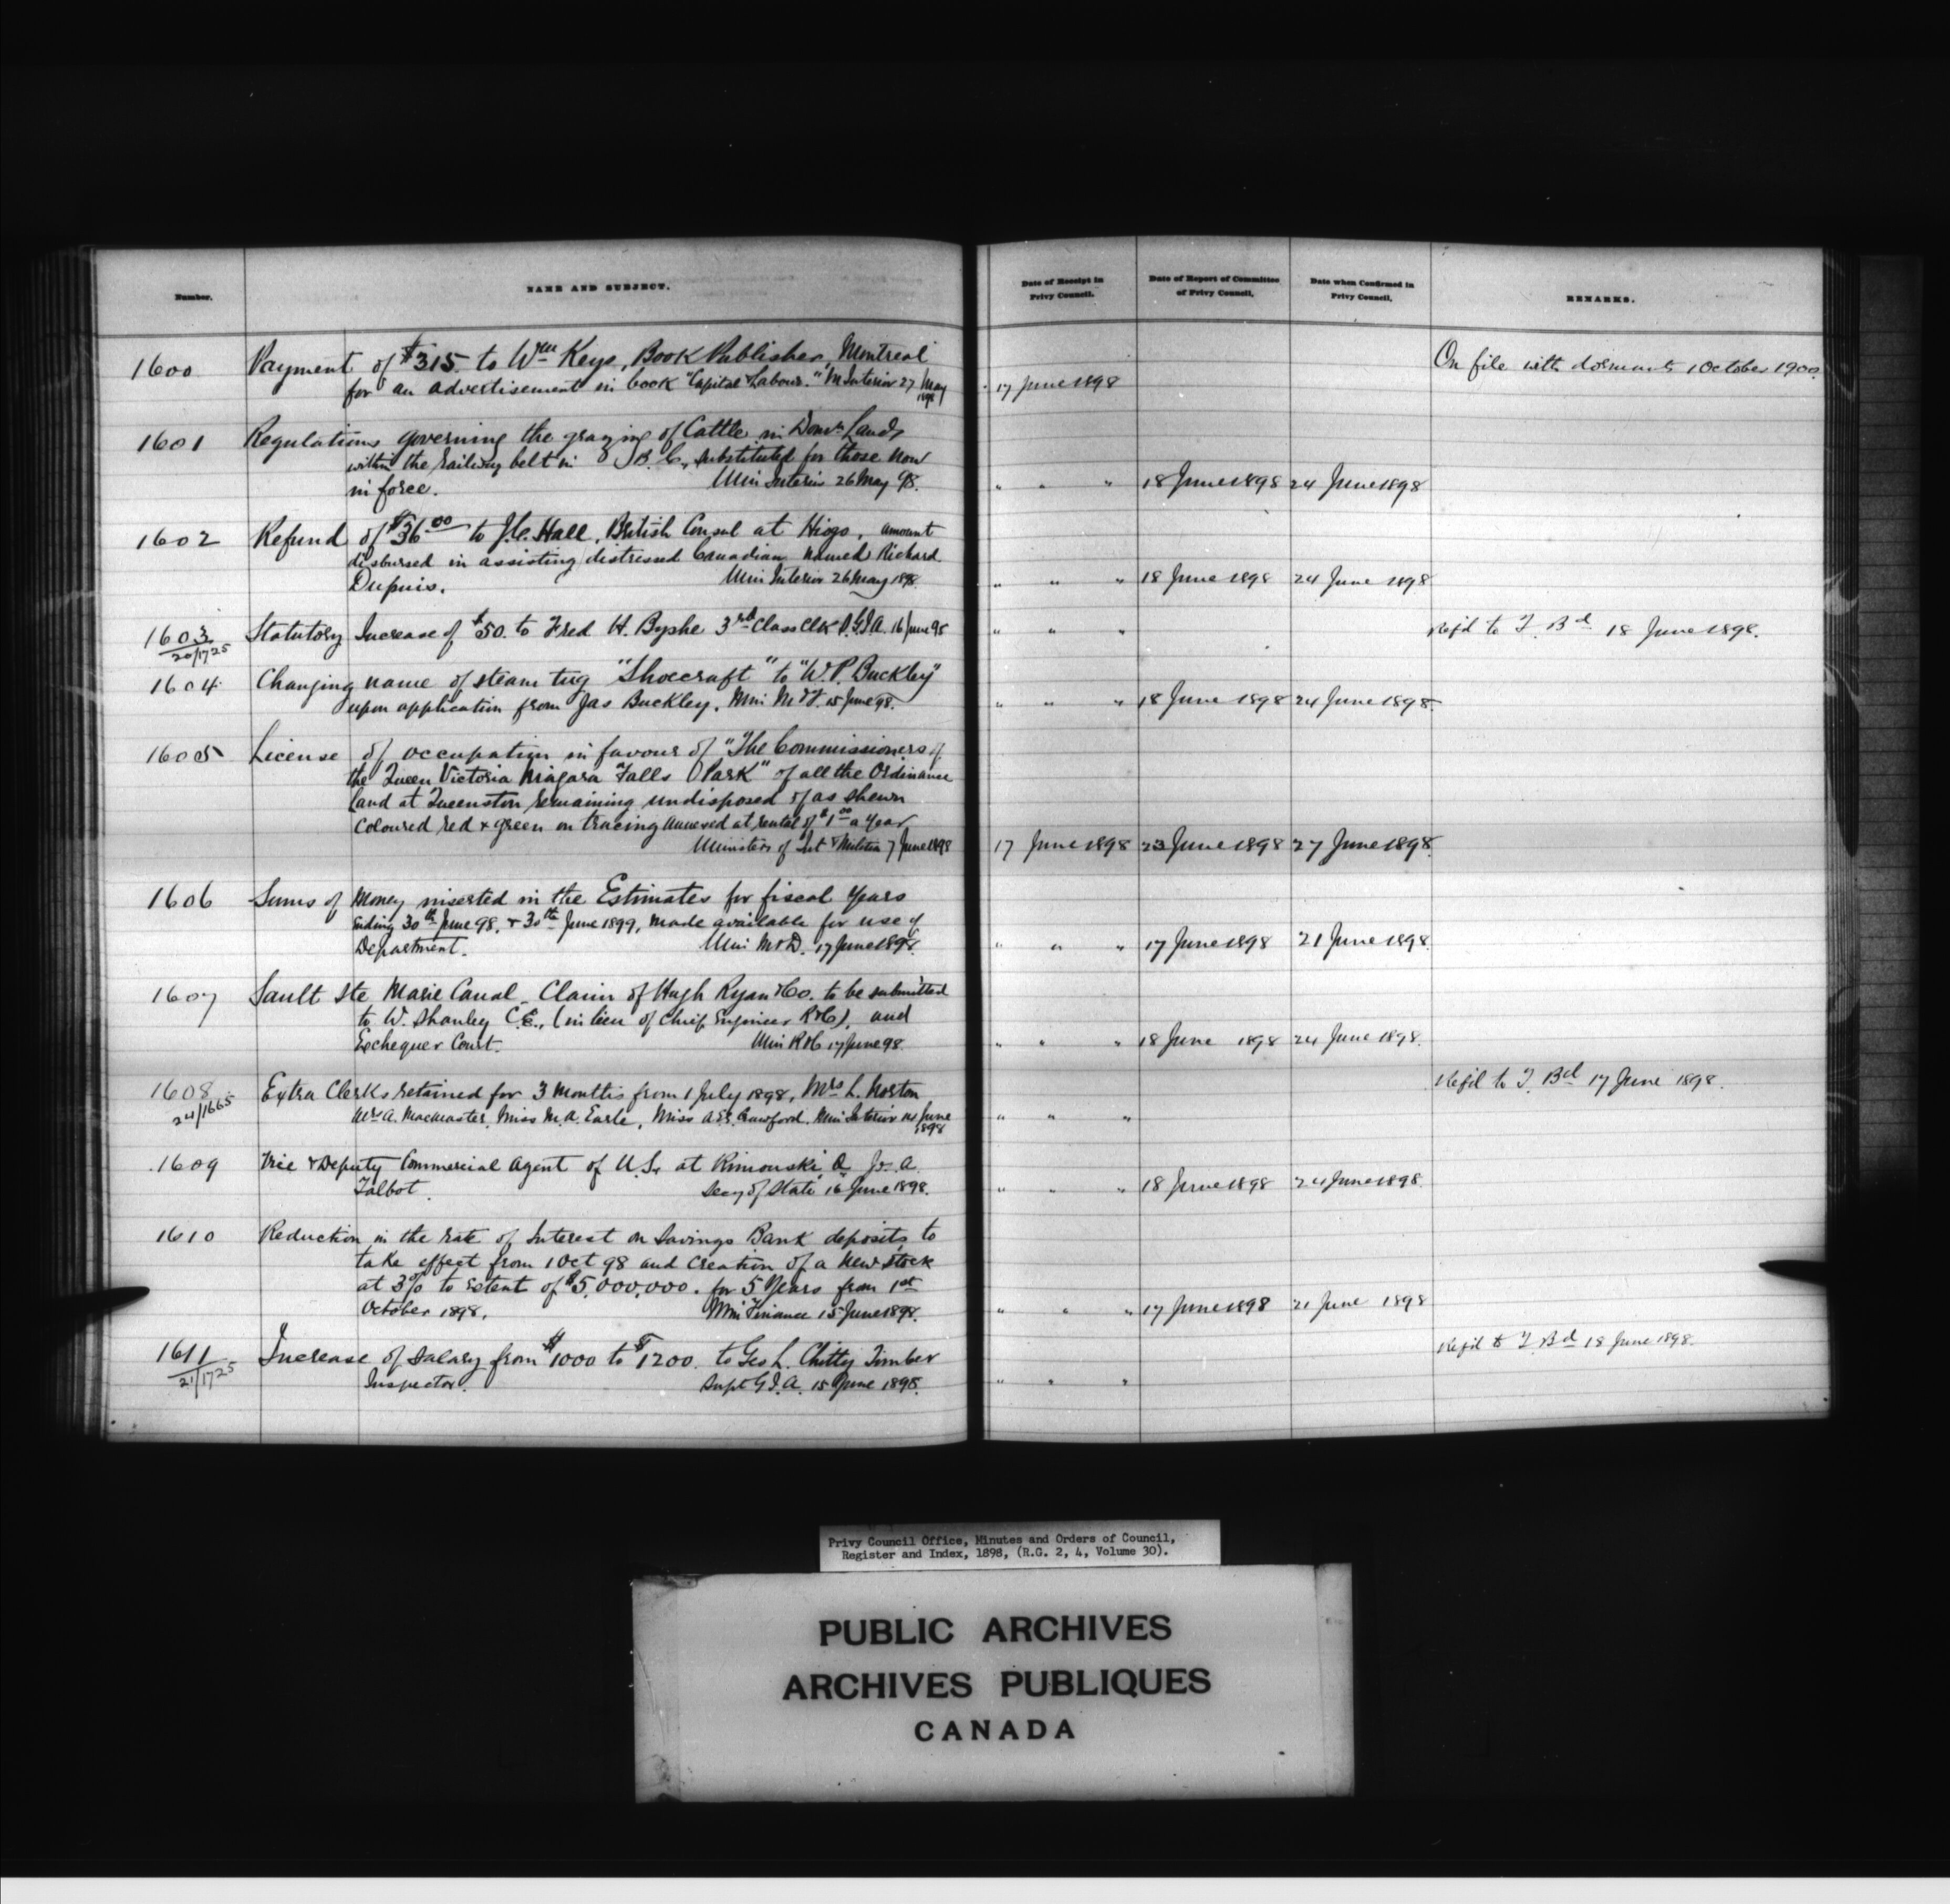 Number.
NAME AND SUBJECT.
Date of Receipt in
Privy Council.
Date of Report of Committee
of Privy Council.
Date when Confirmed in
Privy Council.
REMARKS.
1600 Payment of $315. to Wm Keys, Book Publisher, Montreal
On file with dormants 1 October 1900.
for an advertisement in book "Capital & Labour." M Interior 27 May
1898
17 June 1898
1601 Regulations governing the grazing of Cattle in Domn Lands
within the railway belt in B.C., substituted for those now
in force. Min Interior 26 May 98. " " " 18 June 1898 24 June 1898
1602 Refund of $36 00 to J.C. Hall, British Consul at Hiogo, amount
disbursed in assisting distressed Canadian named Richard
Dupuis. Min Interior 26 May 1898. " " " 18 June 1898 24 June 1898
1603 Statutory Increase of $50. to Fred H. Byshe 3rd Class Clk D.G.I.A. 16 June 98 " " " Ref'd to T. Bd 18 June 1898.
20/1725
1604 Changing name of steam tug "Shoecraft" to "W.P. Buckley"
upon application from Jas Buckley. Min M & F. 15 June 98. " " " 18 June 1898 24 June 1898.
1605 License of occupation in favour of "The Commissioners of
the Queen Victoria Niagara Falls Park" of all the Ordinance
land at Queenston remaining undisposed of as shewn
coloured red & green on tracing annexed at rental of $1 00 a year
Ministers of Int & Militia 7 June 1898 17 June 1898 23 June 1898 27 June 1898.
1606 Sums of Money inserted in the Estimates for fiscal years
ending 30th June 98. & 30th June 1899, made available for use of
Department. Min M & D. 17 June 1898. " " " 17 June 1898 21 June 1898
1607 Sault Ste Marie Canal - Claim of Hugh Ryan & Co. to be submitted
to W. Shanley C.E., (in lieu of Chief Engineer R & C), and
Exchequer Court. Min R & C 17 June 98. " " " 18 June 1898 24 June 1898.
1608 Extra Clerks retained for 3 months from 1 July 1898, Mrs L. Norton
Ref'd to T. Bd 17 June 1898.
24/1665
Mrs A. Macmaster, Miss M.A. Earle, Miss A.E. Crawford. Min Interior 14 June
1898
" " "
1609 Vice & Deputy Commercial Agent of U.S. at Rimouski Q Jr. A.
Talbot. Secy of State 16 June 1898. " " " 18 June 1898 24 June 1898
1610 Reduction in the rate of Interest on Savings Bank deposits to
take effect from 1 Oct 98 and creation of a new stock
at 3% to extent of $5,000,000. for 5 Years from 1st
October 1898. Min Finance 15 June 1898. " " " 17 June 1898 21 June 1898
1611 Increase of salary from $1000 to $1200. to Geo L. Chitty Timber
Ref'd to T. Bd 18 June 1898.
21/1725
Inspector. Supt G.I.A. 15 June 1898. " " "
Privy Council Office, Minutes and Orders of Council,
Register and Index, 1898, (R.G. 2, 4, Volume 30).
PUBLIC ARCHIVES
ARCHIVES PUBLIQUES
CANADA